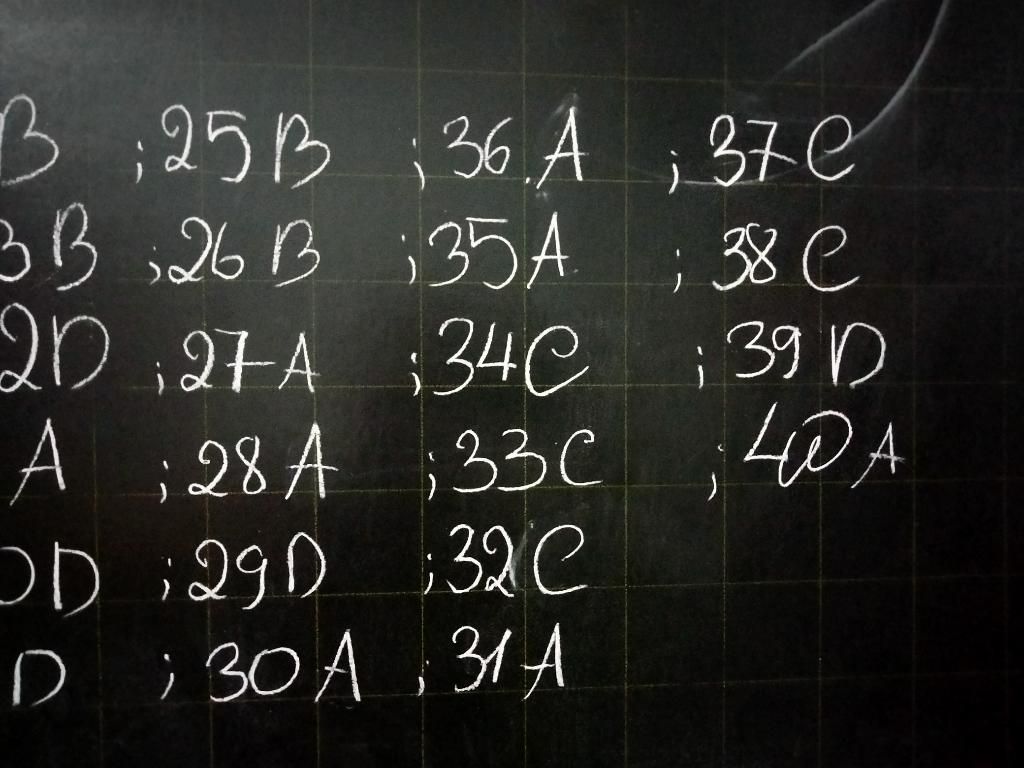 B ; 25 B ; 36 A ; 37 C
3 B ; 26 B ; 35 A ; 38 C
2 D ; 27 A ; 34 C ; 39 D
A ; 28 A ; 33 C ; 40 A
0 D ; 29 D ; 32 C
D ; 30 A ; 31 A